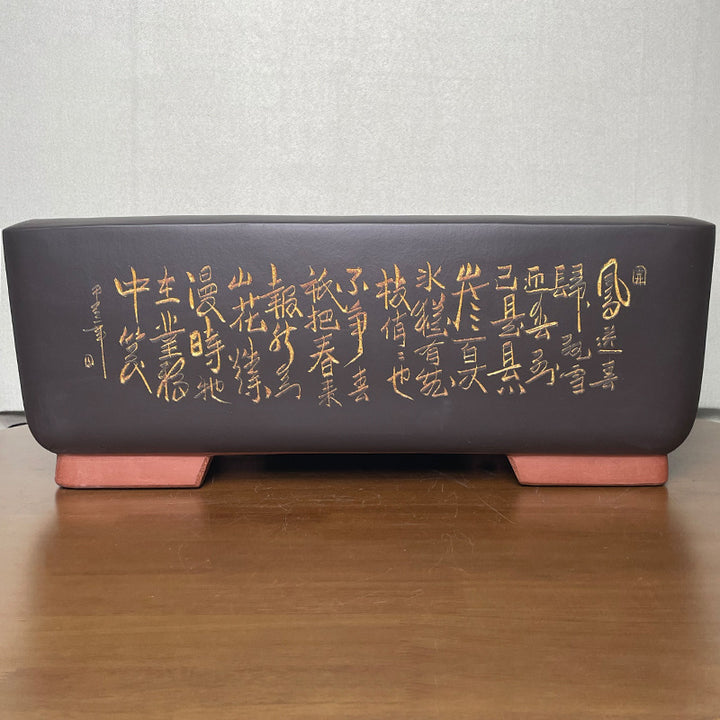 送春
歸飛雪
迎春到
已是懸
崖百丈
冰猶有花
枝俏俏也
不爭春
祇把春來
報待到
山花爛
漫時她
在叢
中笑